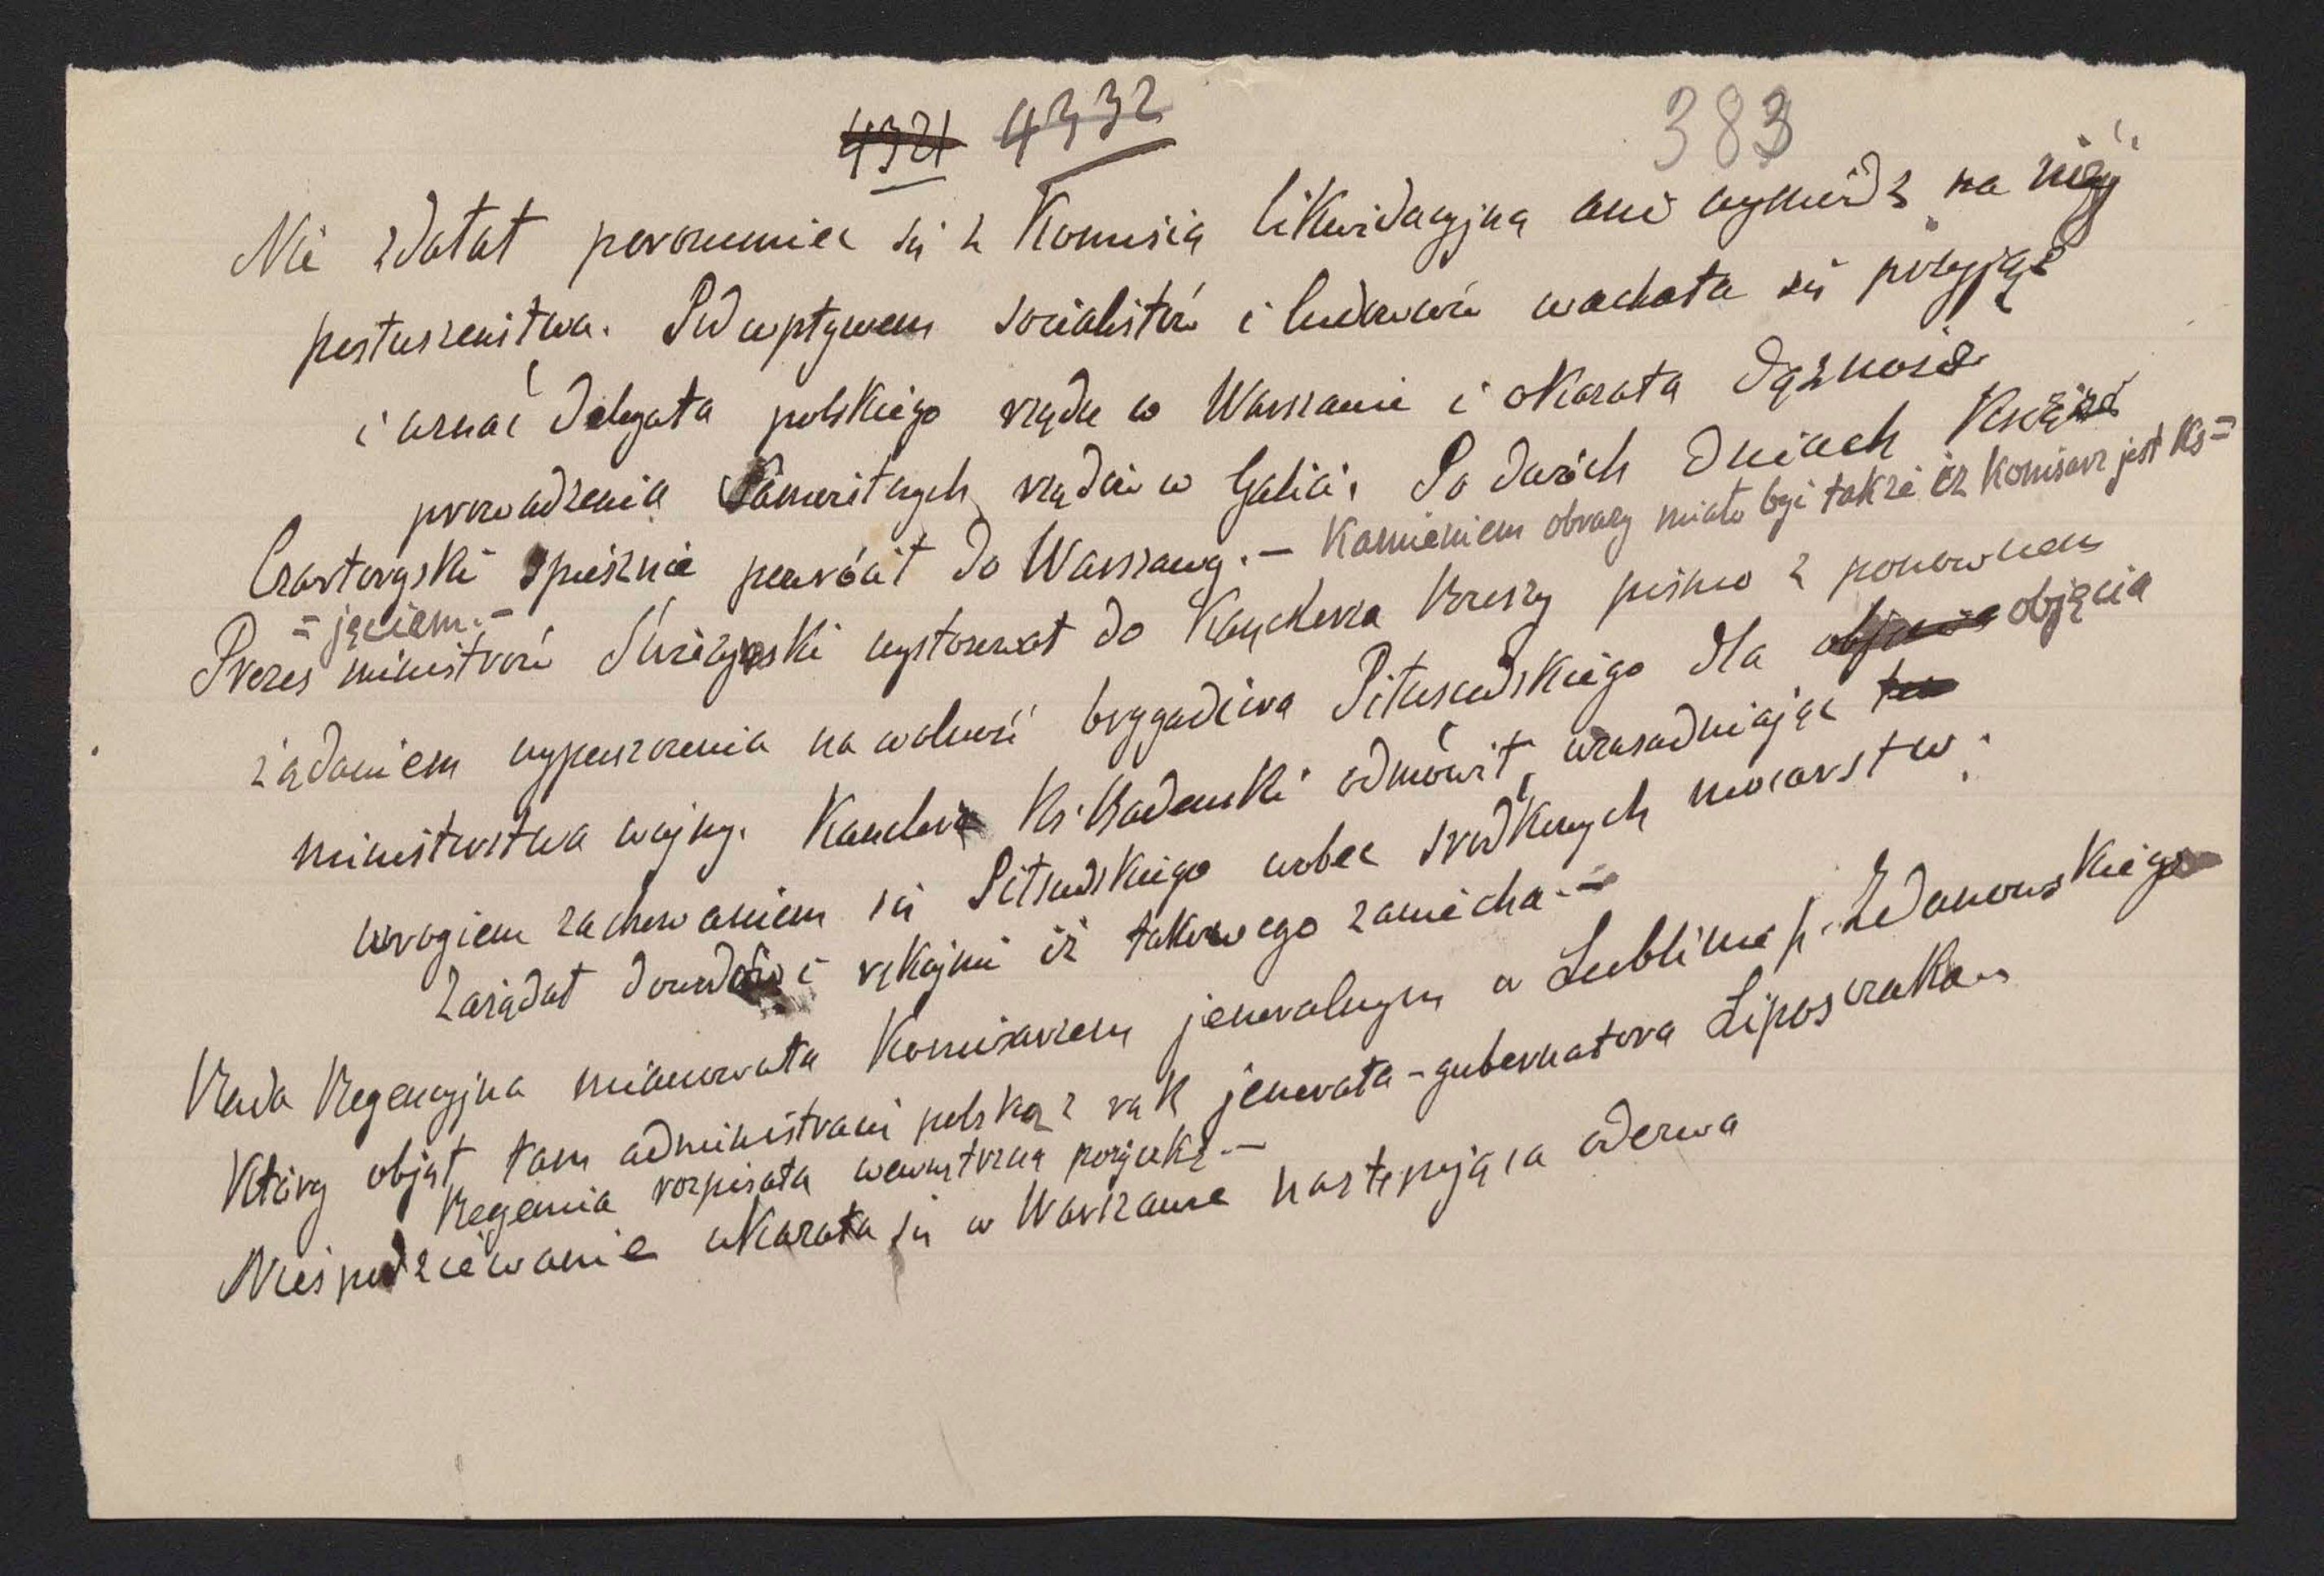 4321 4332
383
Nie zdołał porozumieć się z Komisią likwidacyjną ani wymódz na niéj
posłuszeństwa. Pod wpływem socialistów i ludowców wachała się przyjąć
i uznać delegata polskiego rządu w Warszawie i okazała dążność
prowadzenia samoistnych rządów w Galicii. Po dwóch dniach Książe
Czartoryski spiesznie powrócił do Warszawy. — Kamieniem obrazy miało być także iż Komisarz jest Ks=
= jęciem. —
Prezes ministrów Świeżyński wystosował do Kanclerza Rzeszy pismo z ponownem
żądaniem wypuszczenia na wolność brygadiera Piłsudskiego dla objęcia objęcia
ministerstwa wojny. Kanclerz Ks. Badeński odmówił, uzasadniając to
wrogiem zachowaniem się Piłsudskiego wobec środkowych mocarstw;
zażądał dowodów i rękojmi iż takowego zaniecha. —
Rada Regencyjna mianowała Komisarzem jeneralnym w Lublinie p. Zdanowskiego
który objął tam administracię polską z rąk jenerała-gubernatora Liposczaka
Regencia rozpisała wewnętrzną pożyczkę —
Niespodziewanie ukazała się w Warszawie następująca odezwa